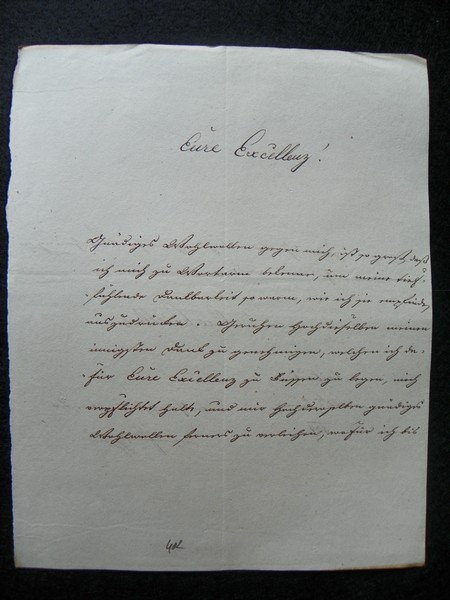 Eure Excellenz!
Gnädiges Wohlwollen gegen mich, ist so groß, daß
ich mich zu Wortarm bekenne, um meine tief-
fühlende Dankbarkeit so warm, wie ich sie empfinde,
auszudrücken. Geruhen Hochdieselben meinen
innigsten Dank zu genehmigen, welchen ich da-
für Eure Excellenz zu Füssen zu legen, mich
verpflichtet halte, und mir Hochderoselben gnädiges
Wohlwollen ferners zu verleihen, wofür ich bis